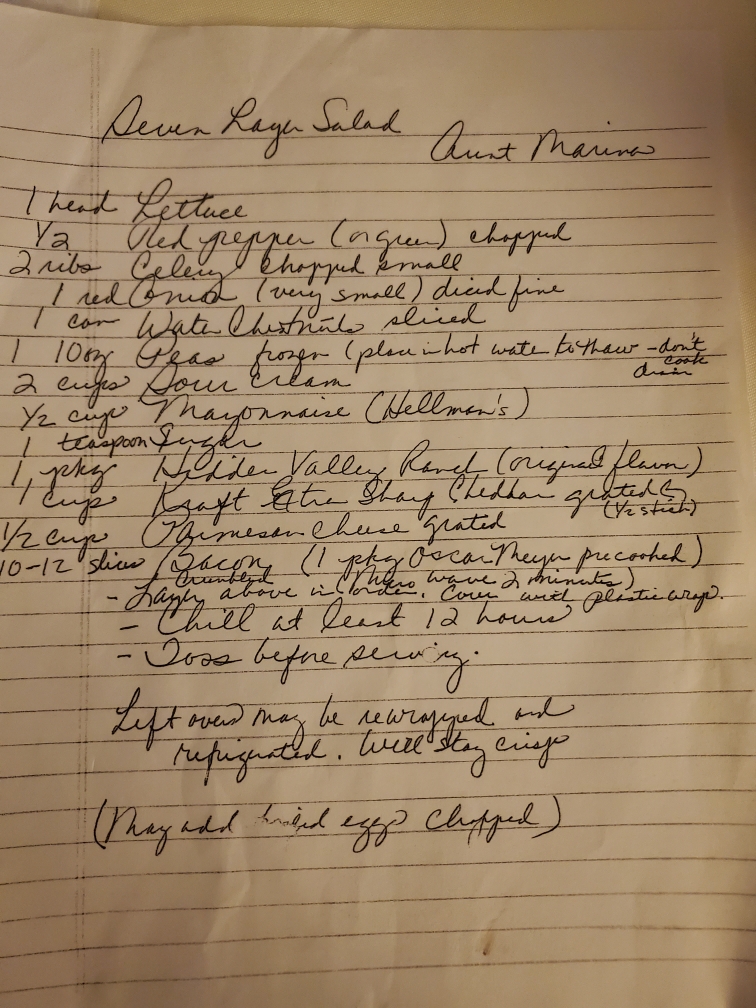 Seven Layer Salad
Aunt Marina
1 head Lettuce
1/2 Red pepper (or green) chopped
2 ribs Celery chopped small
1 red Onion (very small) diced fine
1 can Water Chestnuts sliced
1 10oz Peas frozen (place in hot water to thaw - don't cook
drain
2 cups Sour Cream
1/2 cup Mayonnaise (Hellman's)
1 teaspoon Sugar
1 pkg Hidden Valley Ranch (original flavor)
1 cup Kraft Extra Sharp Cheddar grated
(1/2 stick)
1/2 cup Parmesan Cheese grated
10-12 slices Bacon (1 pkg Oscar Meyer precooked)
Crumbled (Micro wave 2 minutes)
- Layer above in order. Cover with plastic wrap.
- Chill at least 12 hours
- Toss before serving.
Left overs may be rewrapped and
refrigerated. Will stay crisp
(May add eggs chopped)